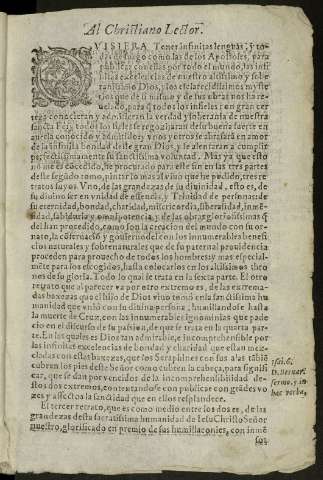 Al Christiano Lector.
QVISIERA Tener infinitas lenguas, y to
das de fuego como las de los Apostoles, para
publicar con ellas por todo el mundo, las inf
initas excelencias de nuestro altissimo y sobe
ranissimo Dios, y los esclarecidissimos myste
rios que de si mismo y de sus obras nos ha re
uelado, para que todos los infieles con gran cer
teza conocieran y admitieran la verdad y soberania de nuestra
sancta Fee, y todos los fieles se regozijaran de su buena suerte en
auerla conocido y admitido: y vnos y otros se abrasaran en amor
de la infinita bondad deste gran Dios, y se alentaran a cumplir
perfectissimamente su sanctissima voluntad. Mas ya que esto
no me es concedido, he procurado parte en las tres partes
deste segundo tomo, pintar lo mas al viuo que he podido, tres re
tratos suyos. Vno, de las grandezas de su diuinidad, esto es, de
su diuino ser en vnidad de essencia y Trinidad de personas: de
su eternidad, bondad, charidad, misericordia, liberalidad, inmen
sidad, sabiduria y omnipotencia, y de las obras gloriosissimas q
del han procedido, como son la creacion del mundo con su or
nato, la conseruacion y gouierno del con los innumerables benefi
cios naturales y sobrenaturales que de su paternal prouidencia
proceden para prouecho de todos los hombres: y mas especial
mente para los escogidos, hasta colocarlos en los altissimos thro
nos de su gloria. Todo lo qual se trata en la sexta parte. El otro
retrato que al parecer va por otro extremo es, de las extrema
das baxezas que el hijo de Dios viuo tomó en la sanctissima hu
manidad que vnió con su diuina persona, humillandose hasta
la muerte de Cruz, con las innumerables ignominias que pade
cio en el discurso de su passion, de que se trata en la quarta par
te. En las quales es Dios tan admirable, e incomprehensible por
las infinitas excelencias de bondad y charidad que estan mez
cladas con estas baxezas, que los Seraphines con sus alas tambiē
cubren los pies deste Señor como cubren la cabeça, para signifi
car, que se dan por vencidos de la incomprehensibilidad de
stos dos extremos, contentandose con publicar con grādes vo
zes y afectos la sanctidad que en ellos resplandece.
El tercer retrato, que es como medio entre los dos es, de las
grandezas desta sacratissima humanidad de Iesu Christo Señor
nuestro, glorificado en premio de sus humillaciones, con inmē
sos
Isai. 6.
D. Bernar.
sermo. 4. in
hæc verba,